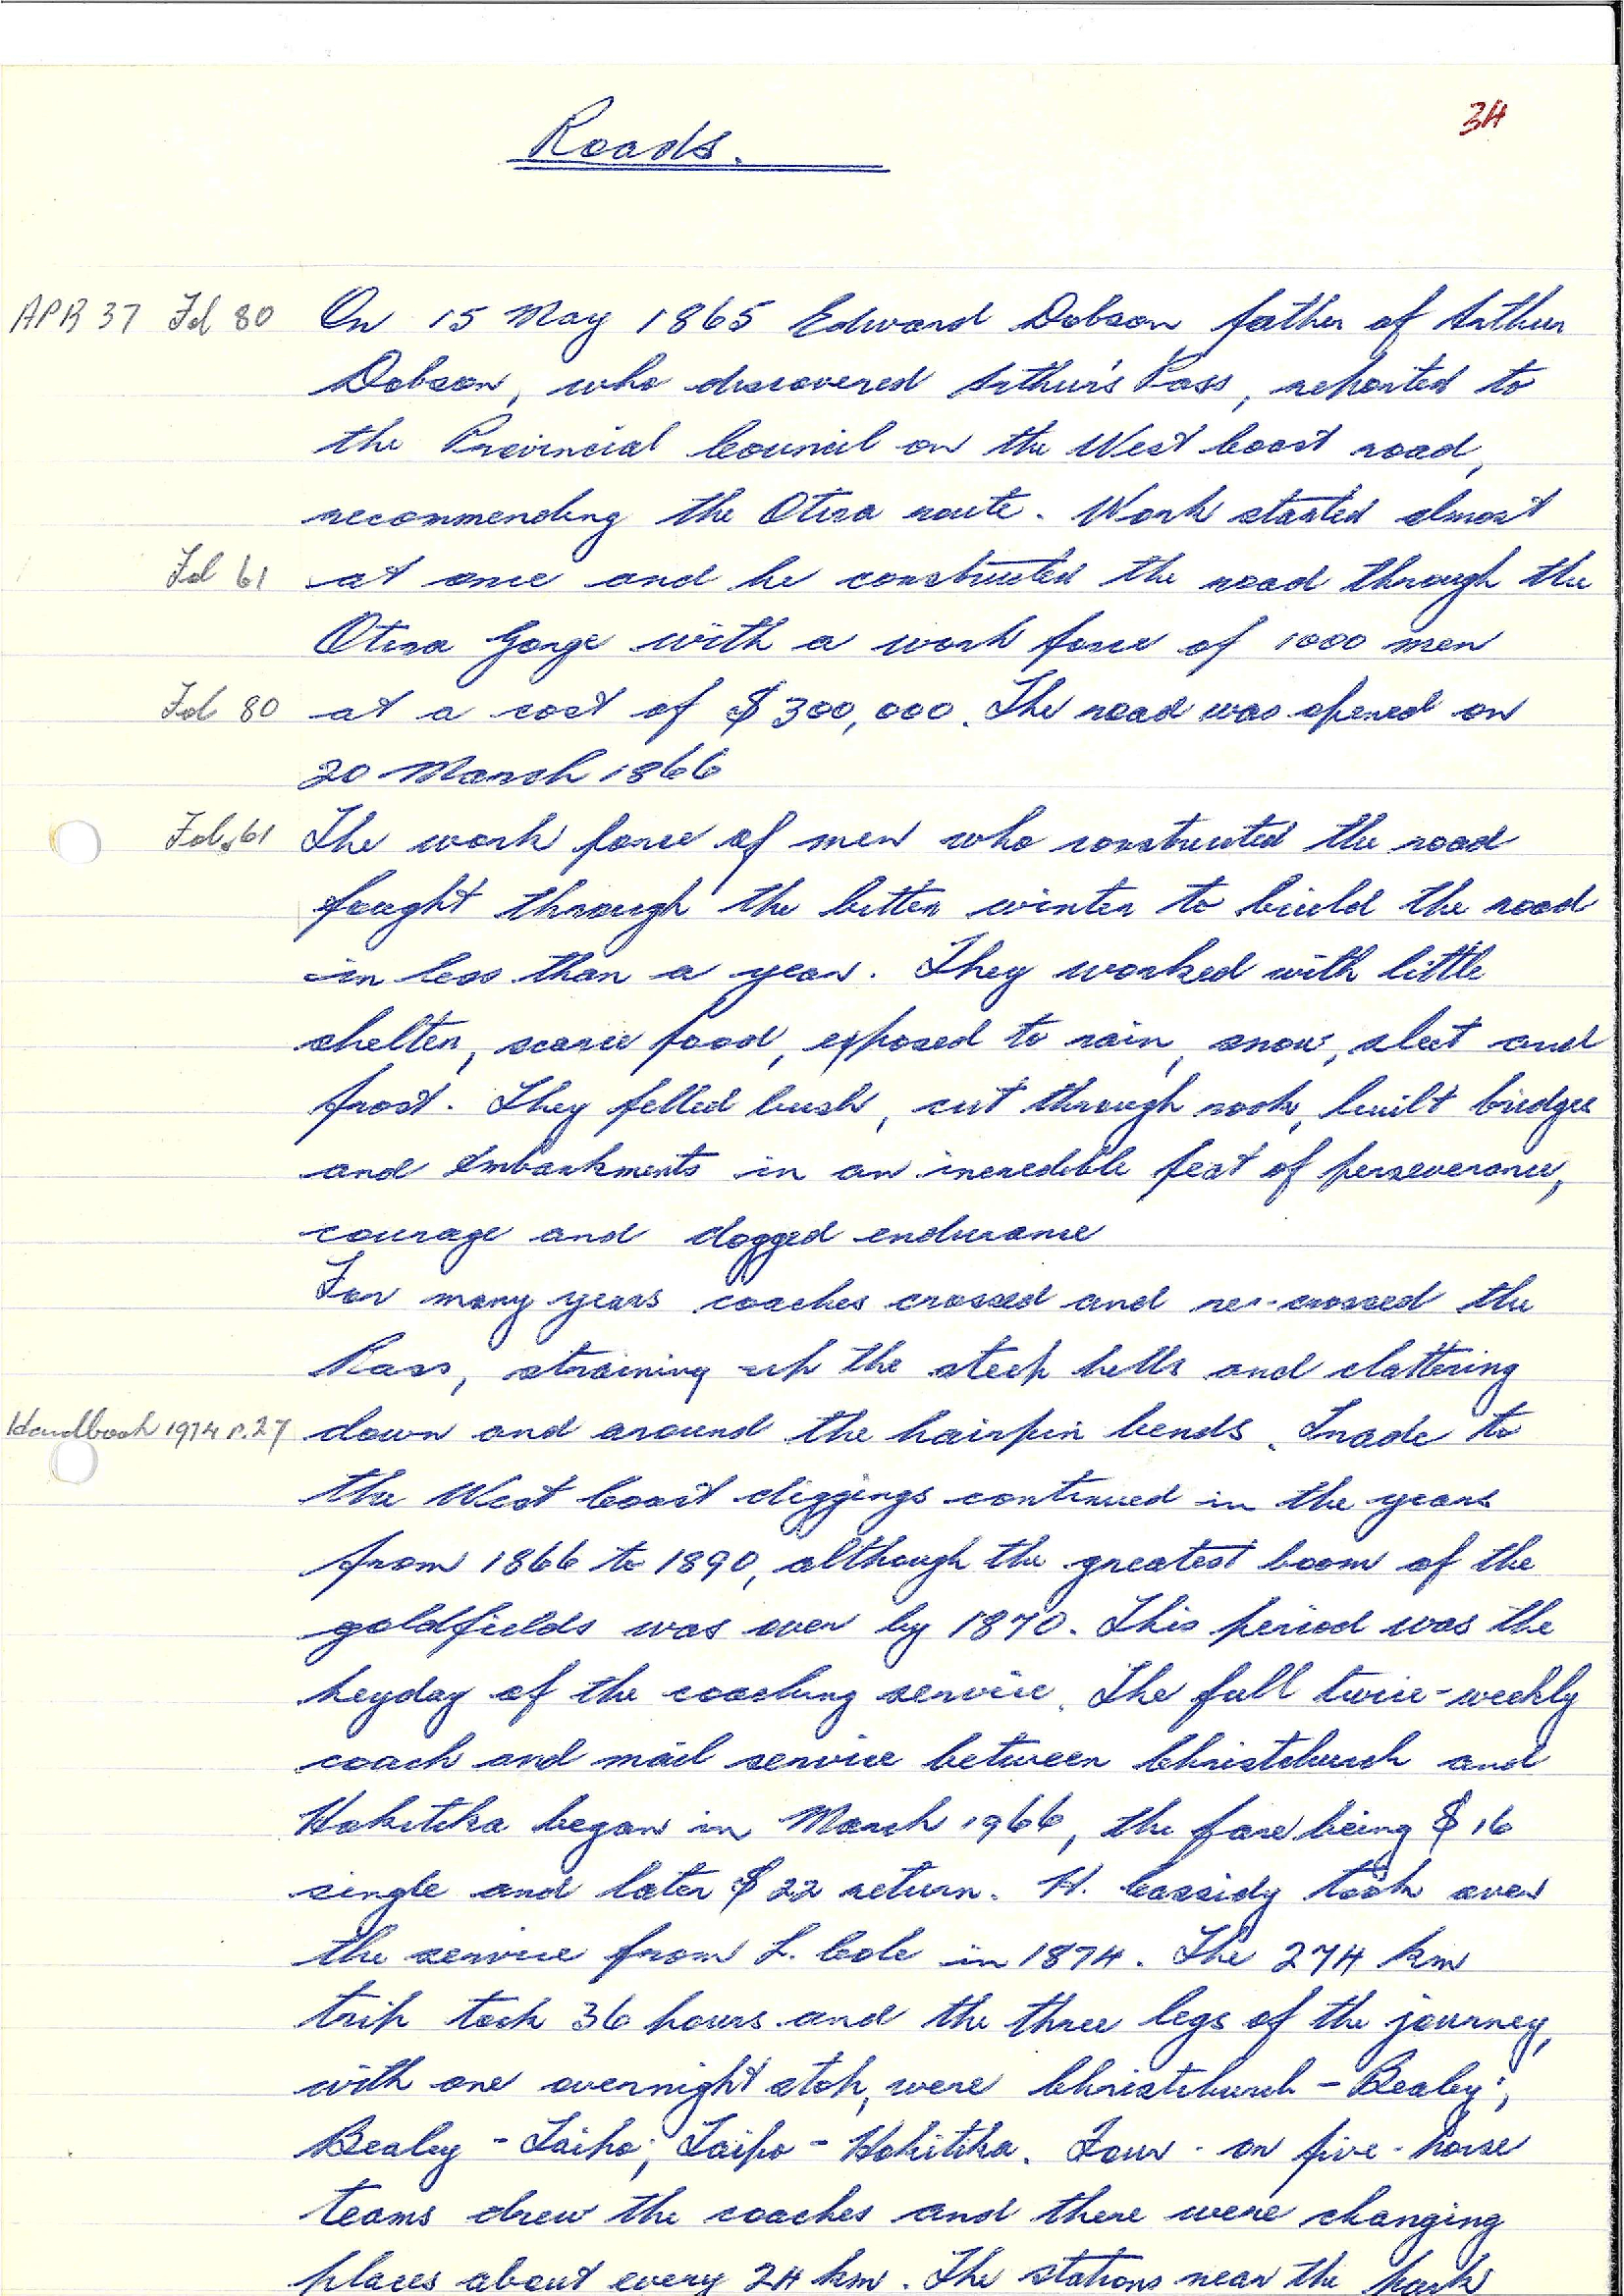 34
Roads.
APB 37 Fd 80 On 15 May 1865 Edward Dobson father of Arthur
Dobson, who discovered Arthur's Pass, reported to
the Provincial Council on the West Coast road,
recommending the Otira route. Work started almost
Fd 61 at once and he constructed the road through the
Otira Gorge with a work force of 1000 men
Fd 80 at a cost of $300,000. The road was opened on
20 March 1866
Fd 61 The work force of men who constructed the road
fought through the bitter winter to build the road
in less than a year. They worked with little
shelter, scarce food, exposed to rain, snow, sleet and
frost. They felled bush, cut through rock, built bridges
and embankments in an incredible feat of perseverance,
courage and dogged endurance
For many years coaches crossed and re-crossed the
Pass, straining up the steep hills and clattering
Handbook 1974 P.27 down and around the hairpin bends. Trade to
the West Coast diggings continued in the years
from 1866 to 1890, although the greatest boom of the
goldfields was over by 1870. This period was the
heyday of the coaching service. The full twice-weekly
coach and mail service between Christchurch and
Hokitika began in March 1966, the fare being $16
single and later $22 return. H. Cassidy took over
the service from L. Cole in 1874. The 274 km
trip took 36 hours and the three legs of the journey,
with one overnight stop, were Christchurch - Bealey;
Bealey - Taipo; Taipo - Hokitika. Four - or five - horse
teams drew the coaches and there were changing
places about every 24 km. The stations near the park